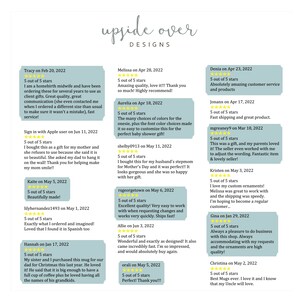 upside over
DESIGNS
Tracy on Feb 20, 2022
5 out of 5 stars
I am a homebirth midwife and have been
ordering these for several years to use as
client gifts. Great quality, great
communication (she even contacted me
when I ordered a different size than usual
to make sure it wasn't a mistake), fast
service!
Sign in with Apple user on Jun 11, 2022
5 out of 5 stars
I bought this as a gift for my mother and
she refuses to use because she said it is
so beautiful. She asked my dad to hang it
on the wall! Thank you for helping make
my mom smile!
Kates on May 5, 2022
5 out of 5 stars
Beautifully made!
lilyhernandez1491 on May 5, 2022
5 out of 5 stars
Exactly what I ordered and imagined!
Loved that I found it in Spanish too
Hannah on Jan 17, 2022
5 out of 5 stars
My sister and I purchased this mug for our
dad for Christmas this last year. He loved
it! He said that it is big enough to have a
full cup of coffee plus he loved having all
the names of his grandkids.
Melissa on Apr 26, 2022
5 out of 5 stars
Amazing quality, love it!!! Thank you
so much! Highly recommend!
Aurelia on Apr 18, 2022
5 out of 5 stars
The many choices of colors for the
mugs, plus the font color choices made
it so easy to customize this for the
perfect baby shower gift!
shelby0913 on May 11, 2022
5 out of 5 stars
I bought this for my husband's stepmom
for Mother's Day and it was perfect! It
looks gorgeous and she was so happy
with her gift.
5 out of 5 stars
Excellent quality! Very easy to work
with when requesting changes and
works very quickly. Ships fast!
Allie on Jan 3, 2022
5 out of 5 stars
Wonderful and exactly as designed! It also
came incredibly fast. I'm so impressed,
and would absolutely buy again
on May 5, 2022
5 out of 5 stars
Perfect! Thank you!!
Denia on Apr 23, 2022
5 out of 5 stars
Absolutely amazing customer service
and products.
Jonato on Apr 17, 2022
5 out of 5 stars
Fast shipping and great product.
on Mar 18, 2022
5 out of 5 stars
This was a gift, and my parents loved
it! The seller even worked with me
to adjust the wording. Fantastic item
& lovely seller!
Kristen on May 3, 2022
5 out of 5 stars
I love my custom ornaments!
Melissa was great to work with
and the shipping was speedy.
I'm hoping to become a regular
customer...
Gina on Jan 29, 2022
5 out of 5 stars
Always a pleasure to do business
with this shop. Always
accommodating with my requests
and the ornaments are high
quality!
Christina on May 2, 2022
5 out of 5 stars
Best Mugs ever. I love it and I know
that my Uncle will love.